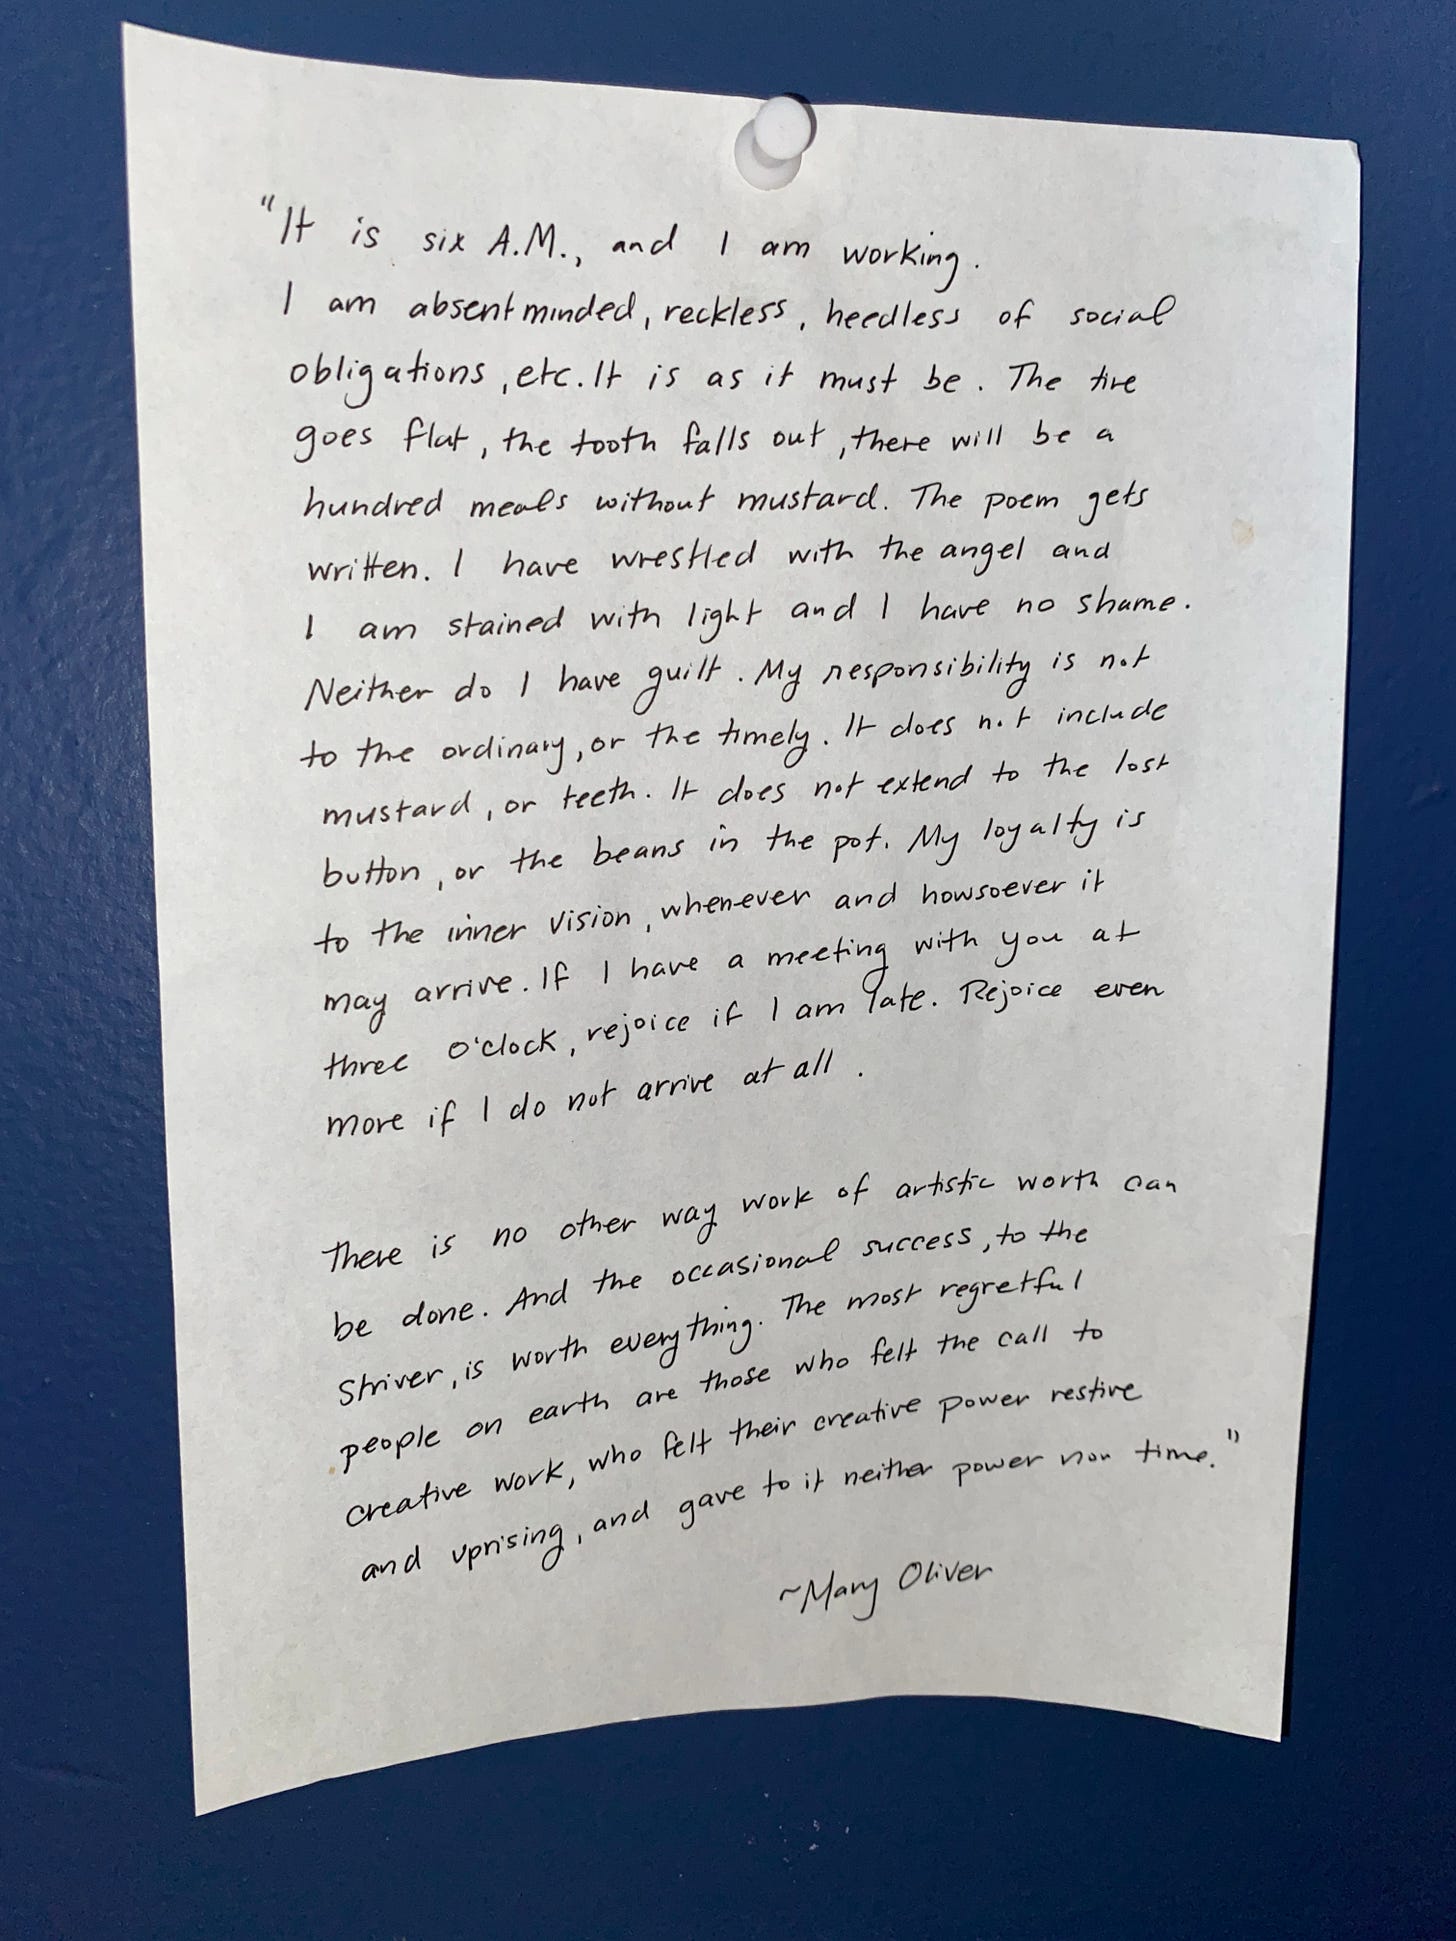 "It is six A.M., and I am working.
I am absentminded, reckless, heedless of social
obligations, etc. It is as it must be. The tire
goes flat, the tooth falls out, there will be a
hundred meals without mustard. The poem gets
written. I have wrestled with the angel and
I am stained with light and I have no shame.
Neither do I have guilt. My responsibility is not
to the ordinary, or the timely. It does not include
mustard, or teeth. It does not extend to the lost
button, or the beans in the pot. My loyalty is
to the inner vision, whenever and howsoever it
may arrive. If I have a meeting with you at
three o'clock, rejoice if I am late. Rejoice even
more if I do not arrive at all.
There is no other way work of artistic worth can
be done. And the occasional success, to the
striver, is worth everything. The most regretful
people on earth are those who felt the call to
creative work, who felt their creative power restive
and uprising, and gave to it neither power nor time."
~Mary Oliver